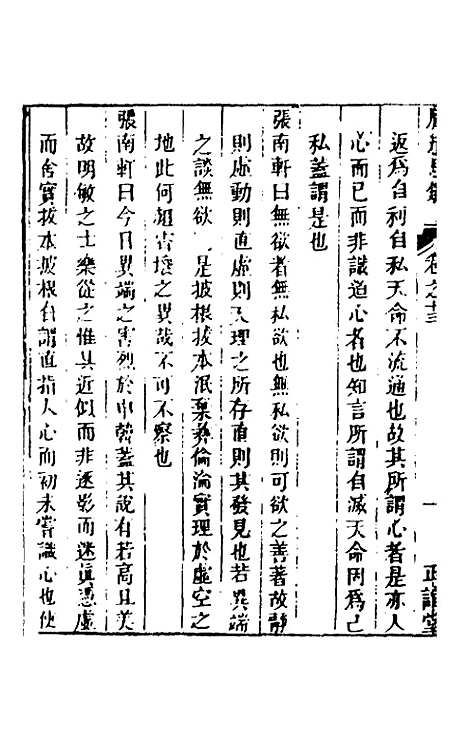 卷之十三
一
正誼堂
返爲自利自私天命不流通也故其所謂心者是亦人
心而已而非識道心者也知言所謂自滅天命固爲己
私蓋謂是也
張南軒曰無欲者無私欲也無私欲則可欲之善著故靜
則虛動則直虛則天理之所存直則其發見也若異端
之談無欲是披根拔本泯棄彝倫淪實理於虛空之
地此何翅霄壤之異哉不可不察也
張南軒曰今日異端之害烈於申韓蓋其說有若高且美
故明敏之士樂從之惟其近似而非逐影而迷眞憑虛
而舍實拔本披根自謂直指人心而初未嘗識心也使